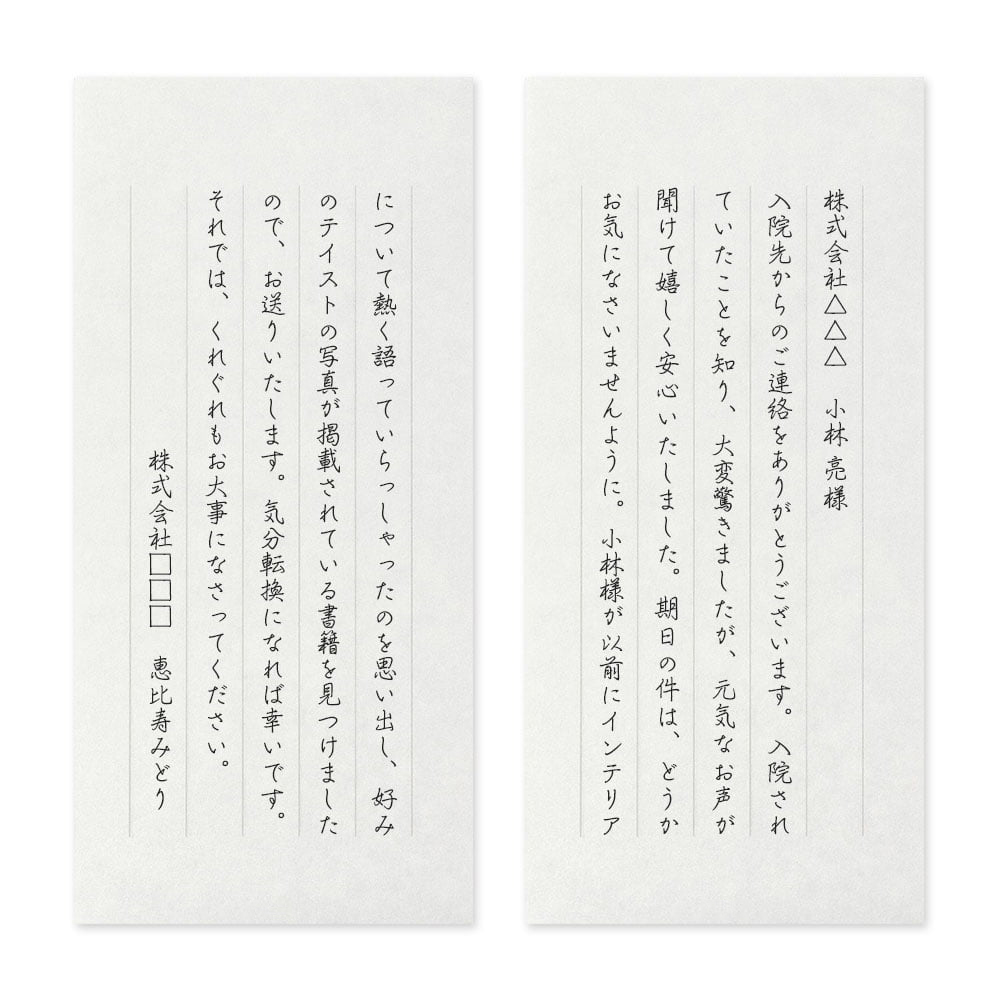 株式会社△△△　小林 亮様
入院先からのご連絡をありがとうございます。入院され
ていたことを知り、大変驚きましたが、元気なお声が
聞けて嬉しく安心いたしました。期日の件は、どうか
お気になさいませんように。小林様が以前にインテリア
について熱く語っていらっしゃったのを思い出し、好み
のテイストの写真が掲載されている書籍を見つけました
ので、お送りいたします。気分転換になれば幸いです。
それでは、くれぐれもお大事になさってください。
株式会社□□□　恵比寿みどり